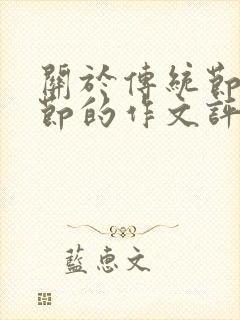 關於傳統節
節的作文評
藍惠文